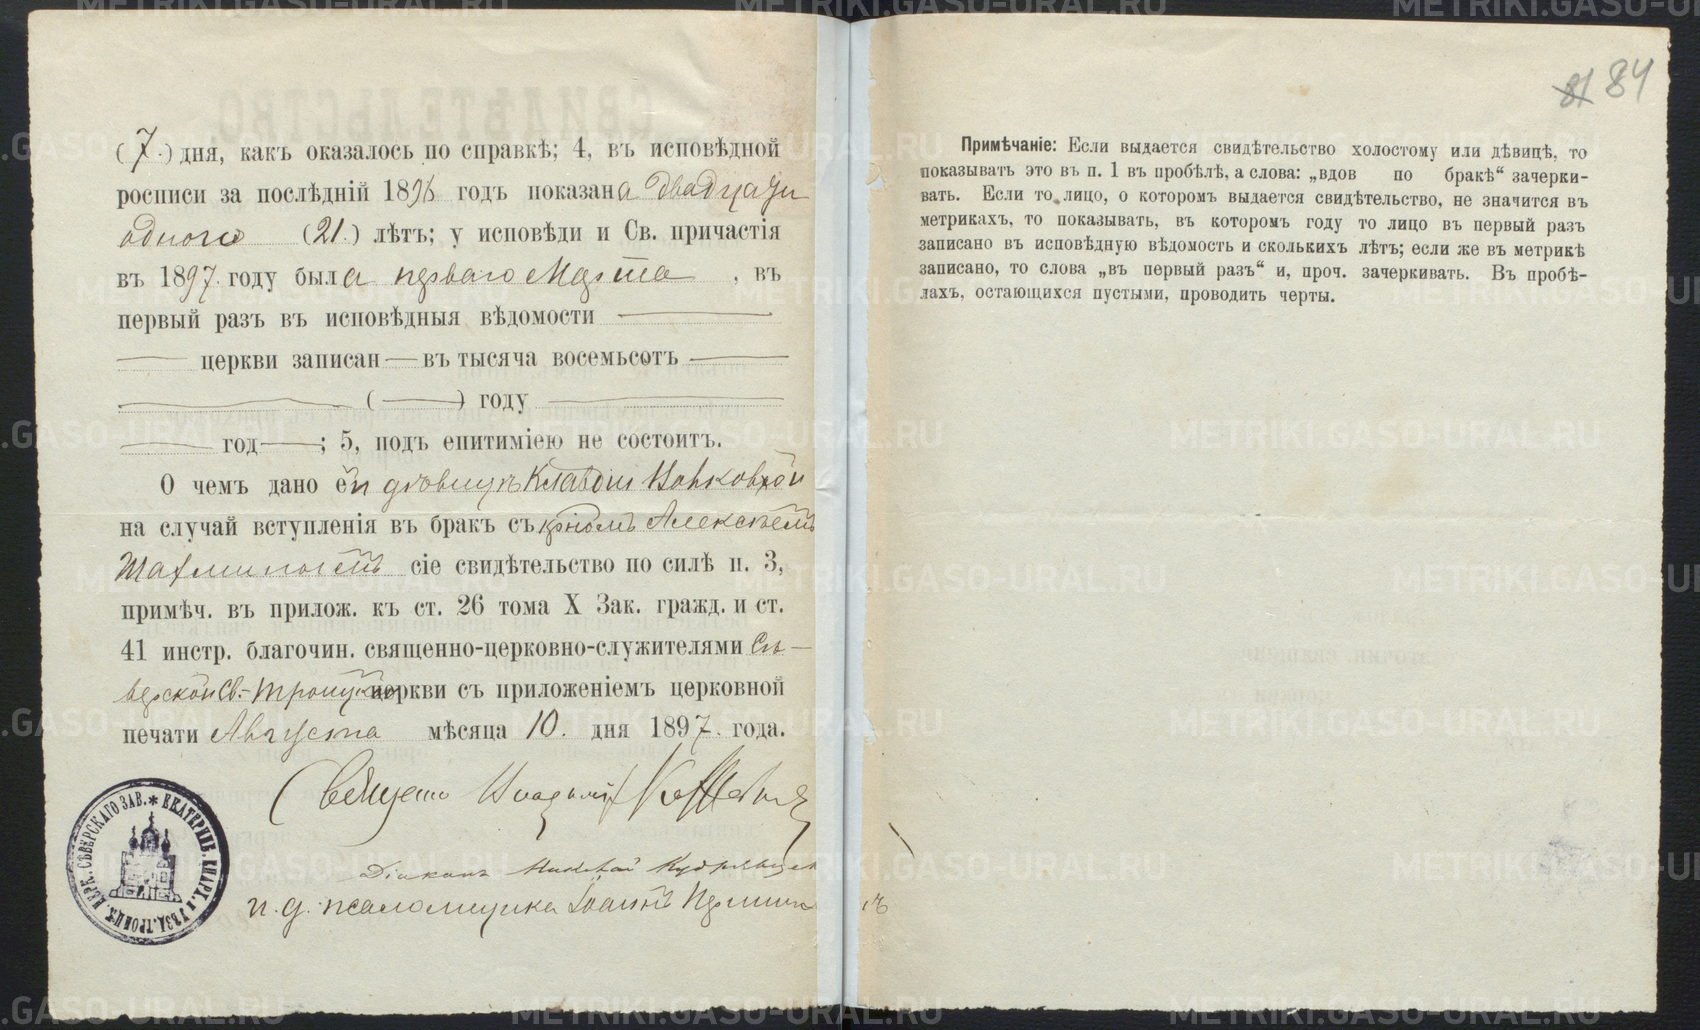 (7.) дня, какъ оказалось по справкѣ; 4, въ исповѣдной
росписи за послѣдній 1896 годъ показана двадцати
одного (21.) лѣтъ; у исповѣди и Св. причастія
въ 1897. году была перваго Марта, въ
первый разъ въ исповѣдныя вѣдомости —
— церкви записан — въ тысяча восемьсотъ —
— ( — ) году —
— год — ; 5, подъ епитиміею не состоитъ.
О чемъ дано ей дѣвицѣ Клавдіи
на случай вступленія въ брак съ Алексѣемъ
сіе свидѣтельство по силѣ п. 3,
примѣч. въ прилож. къ ст. 26 тома X Зак. гражд. и ст.
41 инстр. благочин. священно-церковно-служителями Сѣ-
верской Св.-Троицкой церкви съ приложеніемъ церковной
печати Августа мѣсяца 10. дня 1897. года.
Священ. Владиміръ
Діаконъ Николай Кудрявцев
и. д. псаломщика Іоаннъ
ЕКАТЕРИНБ. ЕПАРХ. И УѢЗД. ТРОИЦК. ЦЕРК. СѢВЕРСКАГО ЗАВ.
81 84
Примѣчаніе: Если выдается свидѣтельство холостому или дѣвицѣ, то
показывать это въ п. 1 въ пробѣлѣ, а слова: „вдов по бракѣ“ зачерки-
вать. Если то лицо, о которомъ выдается свидѣтельство, не значится въ
метрикахъ, то показывать, въ которомъ году то лицо въ первый разъ
записано въ исповѣдную вѣдомость и сколькихъ лѣтъ; если же въ метрикѣ
записано, то слова „въ первый разъ“ и, проч. зачеркивать. Въ пробѣ-
лахъ, остающихся пустыми, проводить черты.
METRIKI.GASO-URAL.RU